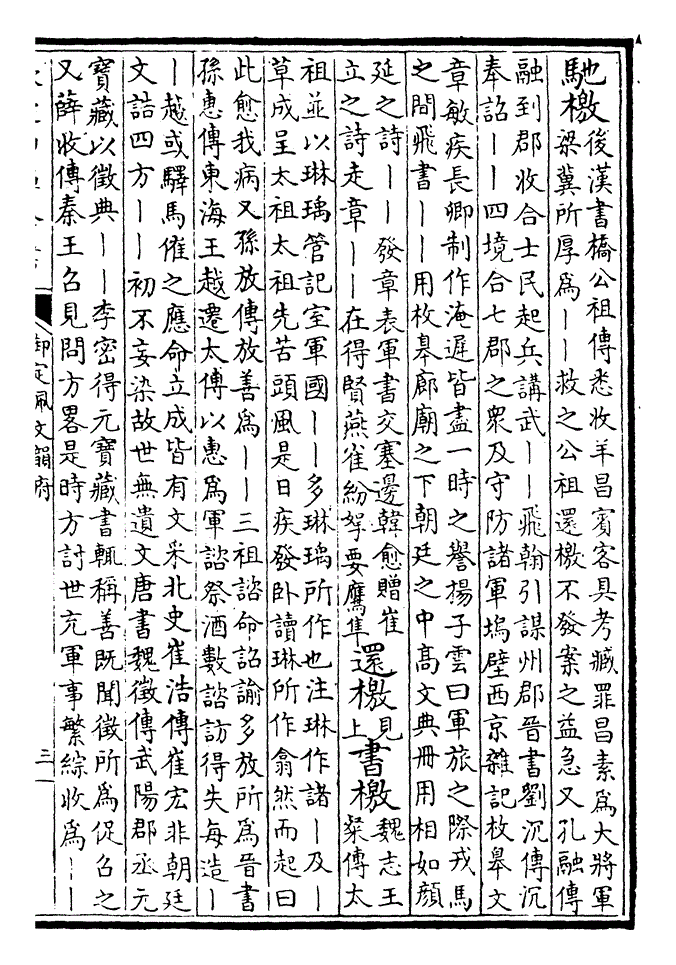 馳檄後漢書橋公祖傳悉收羊昌賓客具考臧罪昌素爲大將軍
梁冀所厚爲丨丨救之公祖還檄不發案之益急又孔融傳
融到郡收合士民起兵講武丨丨飛翰引謀州郡晉書劉沉傳沉
奉詔丨丨四境合七郡之衆及守防諸軍塢壁西京雜記枚皋文
章敏疾長卿制作淹遲皆盡一時之譽揚子雲曰軍旅之際戎馬
之間飛書丨丨用枚皋廊廟之下朝廷之中高文典冊用相如顏
延之詩丨丨發章表軍書交塞邊韓愈贈崔
立之詩走章丨丨在得賢燕雀紛拏要鷹隼
還檄見上
書檄魏志王粲傳太
祖並以琳瑀管記室軍國丨丨多琳瑀所作也注琳作諸丨及丨
草成呈太祖太祖先苦頭風是日疾發卧讀琳所作翕然而起曰
此愈我病又孫放傳放善爲丨丨三祖詔命詔諭多放所爲晉書
孫惠傳東海王越遷太傅以惠爲軍諮祭酒數諮訪得失每造丨
丨越或驛馬催之應命立成皆有文采北史崔浩傳崔宏非朝廷
文誥四方丨丨初不妄染故世無遺文唐書魏徵傳武陽郡丞元
寶藏以徵典丨丨李密得元寶藏書輒稱善既聞徵所爲促召之
又薛收傳秦王召見問方畧是時方討世充軍事繁綜收爲丨丨
御定佩文韻府
三